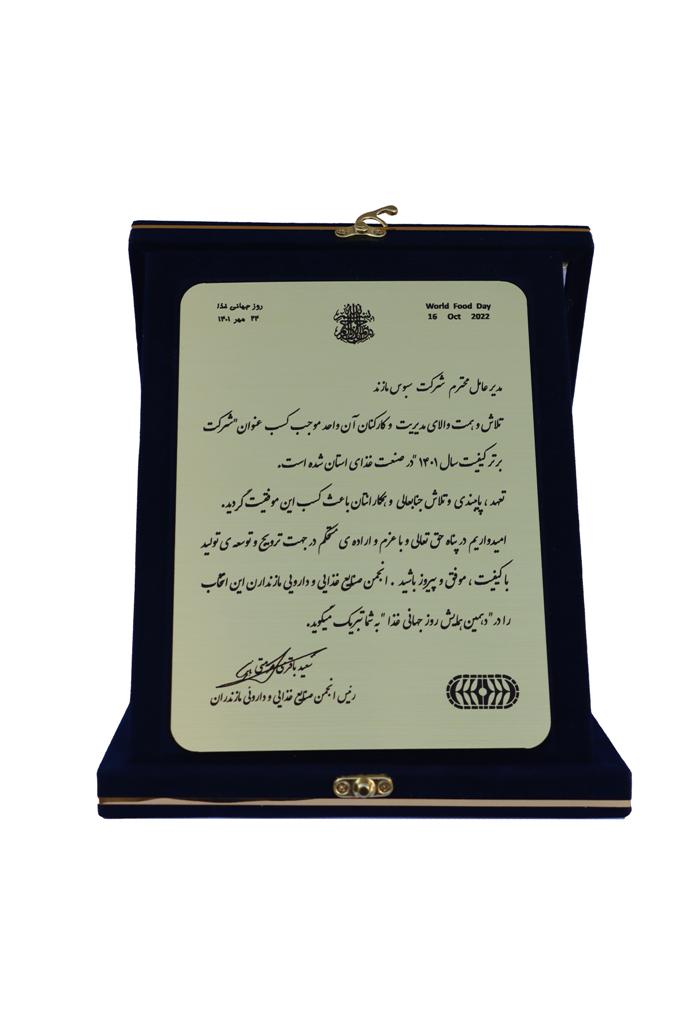 روز جهانی غذا
۲۴ مهر ۱۴۰۱
World Food Day
16 Oct 2022
مدیر عامل محترم شرکت سبوس مازند
تلاش و همت والای مدیریت و کارکنان آن واحد موجب کسب عنوان "شرکت
برتر کیفیت سال ۱۴۰۱" در صنعت غذای استان شده است.
تعهد، پایبندی و تلاش جنابعالی و همکارانتان باعث کسب این موفقیت گردید.
امیدواریم در پناه حق تعالی و با عزم و اراده ی مستحکم در جهت ترویج و توسعه ی تولید
با کیفیت، موفق و پیروز باشید. انجمن صنایع غذایی و دارویی مازندارن این انتخاب
را در "دهمین همایش روز جهانی غذا" به شما تبریک میگوید.
رئیس انجمن صنایع غذایی و داروئی مازندران